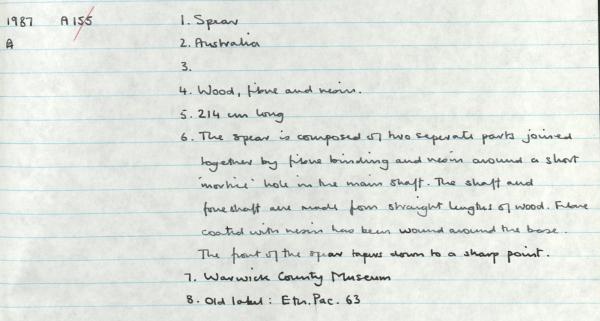 1987 A 155 1. Spear
A 2. Australia
3.
4. Wood, fibre and resin.
5. 214 cm long
6. The spear is composed of two seperate parts joined
together by fibre binding and resin around a short
'mortice' hole in the main shaft. The shaft and
foreshaft are made from straight lengths of wood. Fibre
coated with resin has been wound around the base.
The front of the spear tapers down to a sharp point.
7. Warwick County Museum
8. Old label: Etn. Pac. 63